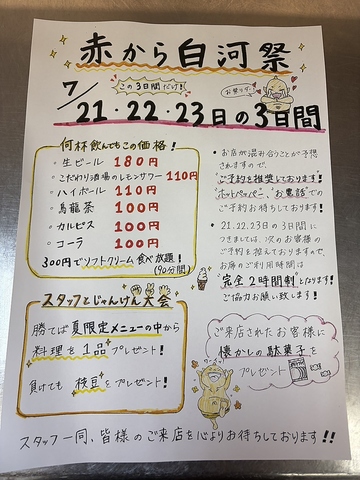 赤から白河祭
この3日間だけ!
お祭りダ〜!
7/21・22・23日の3日間
何杯飲んでもこの価格!
・生ビール 180円
・こだわり酒場のレモンサワー 110円
・ハイボール 110円
・烏龍茶 100円
・カルピス 100円
・コーラ 100円
300円でソフトクリーム食べ放題!
(90分間)
・お店が混み合うことが予想
されますので、
ご予約を推奨しております!
"ホットペッパー"、"お電話"での
ご予約お待ちしております!
・21.22.23日の3日間に
つきましては、次のお客様の
ご予約を控えておりますので
お席のご利用時間は
"完全2時間制"となります!
ご協力お願い致します!
スタッフとじゃんけん大会
勝てば夏限定メニューの中から
料理を1品プレゼント!
負けても枝豆をプレゼント!
ご来店されたお客様に
懐かしの駄菓子を
プレゼント
スタッフ一同、皆様のご来店を心よりお待ちしております!!